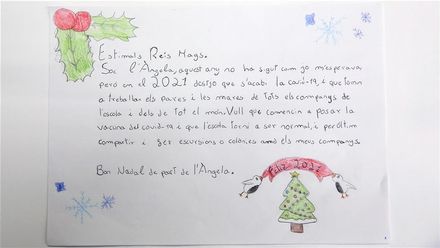 Estimats Reis Mags.
Soc l'Àngela, aquest any no ha sigut com jo m'esperava
però en el 2021 desitjo que s'acabi la covid-19, i que tornin
a treballar els pares i les mares de tots els companys de
l'escola i dels de tot el món. Vull que comencin a posar la
vacuna del covid-19 i que l'escola torni a ser normal, i per últim
compartir i fer excursions o colònies amb els meus companys.
Bon Nadal de part de l'Àngela.
Feliz 2021